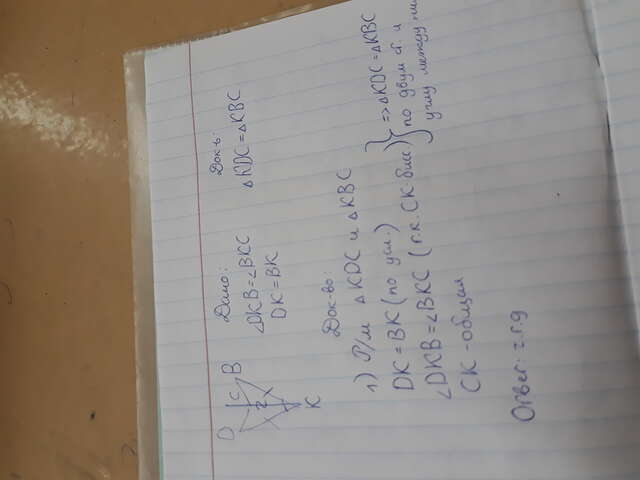 D C B
K
Дано:
∠DKB=∠BKC
DK=BK
Док-ть:
△KDC=△KBC
Док-во:
1) Р/м △KDC и △KBC
DK=BK (по усл.)
∠DKB=∠BKC (т.к. CK-бис)
CK-общая
=>△KDC=△KBC
по двум ст. и
углу между ни
Ответ: ч.т.д